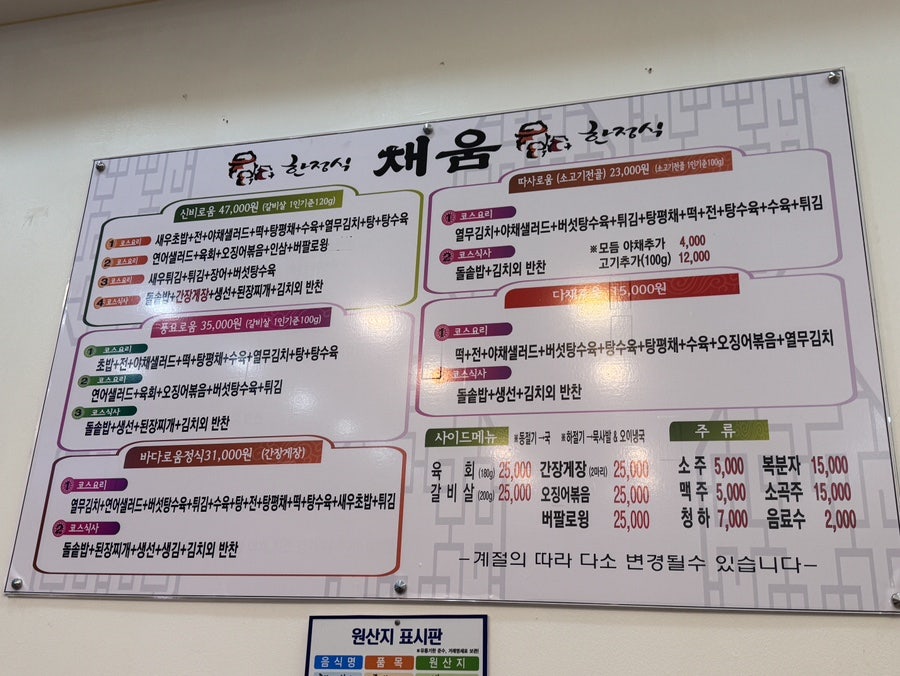 한정식 채움 한정식
신비로움 47,000원 (갈비살 1인기준120g)
1 코스요리 새우초밥+전+야채샐러드+떡+탕평채+수육+열무김치+탕+탕수육
2 코스요리 연어샐러드+육회+오징어볶음+인삼+버팔로윙
3 코스요리 새우튀김+튀김+장어+버섯탕수육
4 코스식사 돌솥밥+간장게장+생선+된장찌개+김치외 반찬
풍요로움 35,000원 (갈비살 1인기준100g)
1 코스요리
초밥+전+야채샐러드+떡+탕평채+수육+열무김치+탕+탕수육
2 코스요리
연어샐러드+육회+오징어볶음+버섯탕수육+튀김
3 코스식사
돌솥밥+생선+된장찌개+김치외 반찬
바다로움정식31,000원 (간장게장)
1 코스요리
열무김치+연어샐러드+버섯탕수육+튀김+수육+탕+전+탕평채+떡+탕수육+새우초밥+튀김
2 코스식사
돌솥밥+된장찌개+생선+생김+김치외 반찬
따사로움 (소고기전골) 23,000원 (소고기전골 1인기준100g)
1 코스요리
열무김치+야채샐러드+버섯탕수육+튀김+탕평채+떡+전+탕수육+수육+튀김
2 코스식사
돌솥밥+김치외 반찬
※모듬 야채추가 4,000
고기추가(100g) 12,000
15,000원
1 코스요리
떡+전+야채샐러드+버섯탕수육+탕수육+탕평채+수육+오징어볶음+열무김치
코스식사
돌솥밥+생선+김치외 반찬
사이드메뉴 ※동절기→국 ※하절기→묵사발 & 오이냉국
육 회 (180g) 25,000 간장게장 (2마리) 25,000
갈 비 살 (200g) 25,000 오징어볶음 25,000
버팔로윙 25,000
주 류
소 주 5,000 복분자 15,000
맥 주 5,000 소곡주 15,000
청 하 7,000 음료수 2,000
–계절의 따라 다소 변경될수 있습니다–
원산지 표시판
음식명 품목 원산지